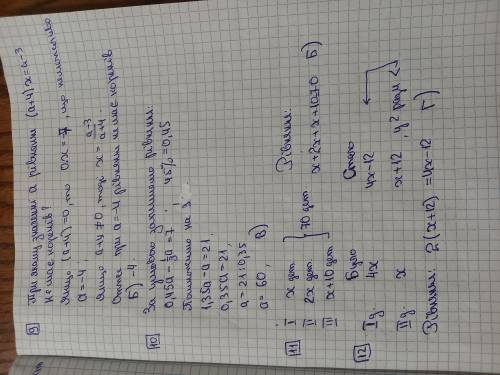 9 При якому значенні a рівняння (a+4)x=a-3
не має коренів?
Якщо (a+4)=0, то 0x=-7, що неможливо
a=-4.
Якщо a+4≠0, тоді x = a-3/a+4.
Отже при a=-4 рівняння не має коренів
Б) -4.
10 За умовою запишемо рівняння:
45%=0,45
Помножимо на 3
1,35a-a=21.
0,35a=21,
a=21:0,35
a=60, В)
11 Рівняння:
I x дет.
II 2x дет. } 70 дет. x+2x+x+10=70 Б)
III x+10 дет
12 Було Стало
I д. 4x 4x-12
II д. x x+12, у 2 рази <
Рівняння: 2(x+12)=4x-12 Г)